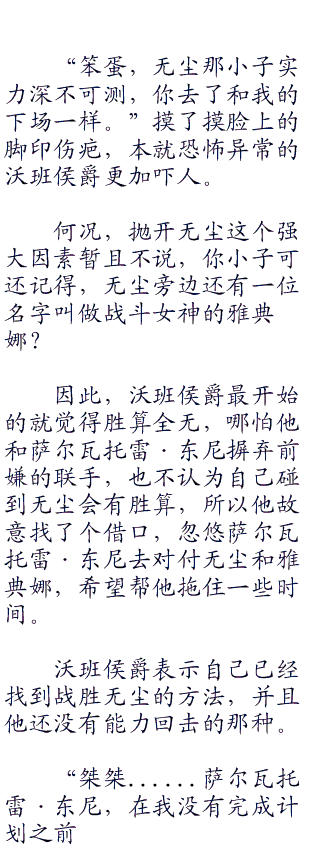 “笨蛋，无尘那小子实
力深不可测，你去了和我的
下场一样。”摸了摸脸上的
脚印伤疤，本就恐怖异常的
沃班侯爵更加吓人。
何况，抛开无尘这个强
大因素暂且不说，你小子可
还记得，无尘旁边还有一位
名字叫做战斗女神的雅典
娜？
因此，沃班侯爵最开始
的就觉得胜算全无，哪怕他
和萨尔瓦托雷·东尼摒弃前
嫌的联手，也不认为自己碰
到无尘会有胜算，所以他故
意找了个借口，忽悠萨尔瓦
托雷·东尼去对付无尘和雅
典娜，希望帮他拖住一些时
间。
沃班侯爵表示自己已经
找到战胜无尘的方法，并且
他还没有能力回击的那种。
“桀桀......萨尔瓦托
雷·东尼，在我没有完成计
划之前